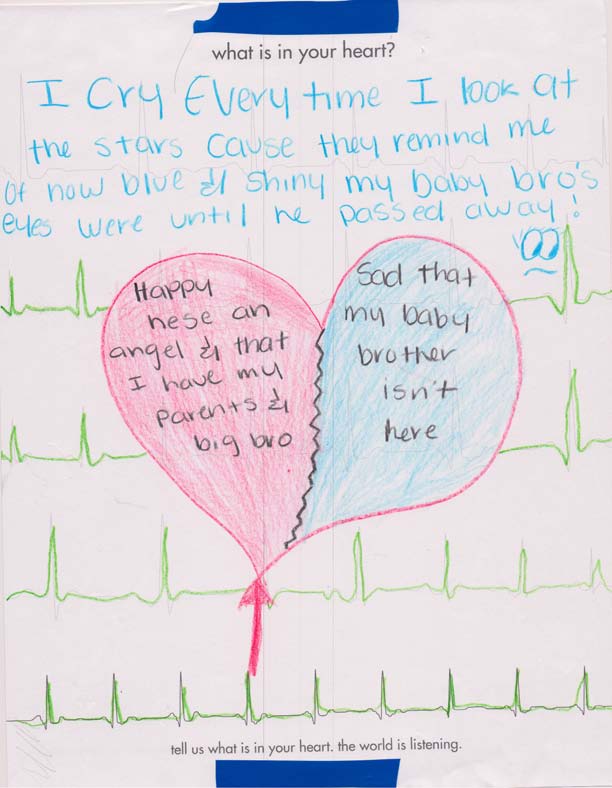 what is in your heart?
I Cry Every time I look at
the stars cause they remind me
of how blue & shiny my baby bro's
eyes were until he passed away!
Happy
hese an
angel & that
I have my
parents &
big bro
Sad that
my baby
brother
isn't
here
tell us what is in your heart. the world is listening.